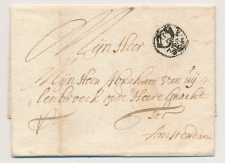 Mijn Heer
Mijn Heer Abraham van uij
lenbroeck op de Heere Gracht
Tot
Amsterdam